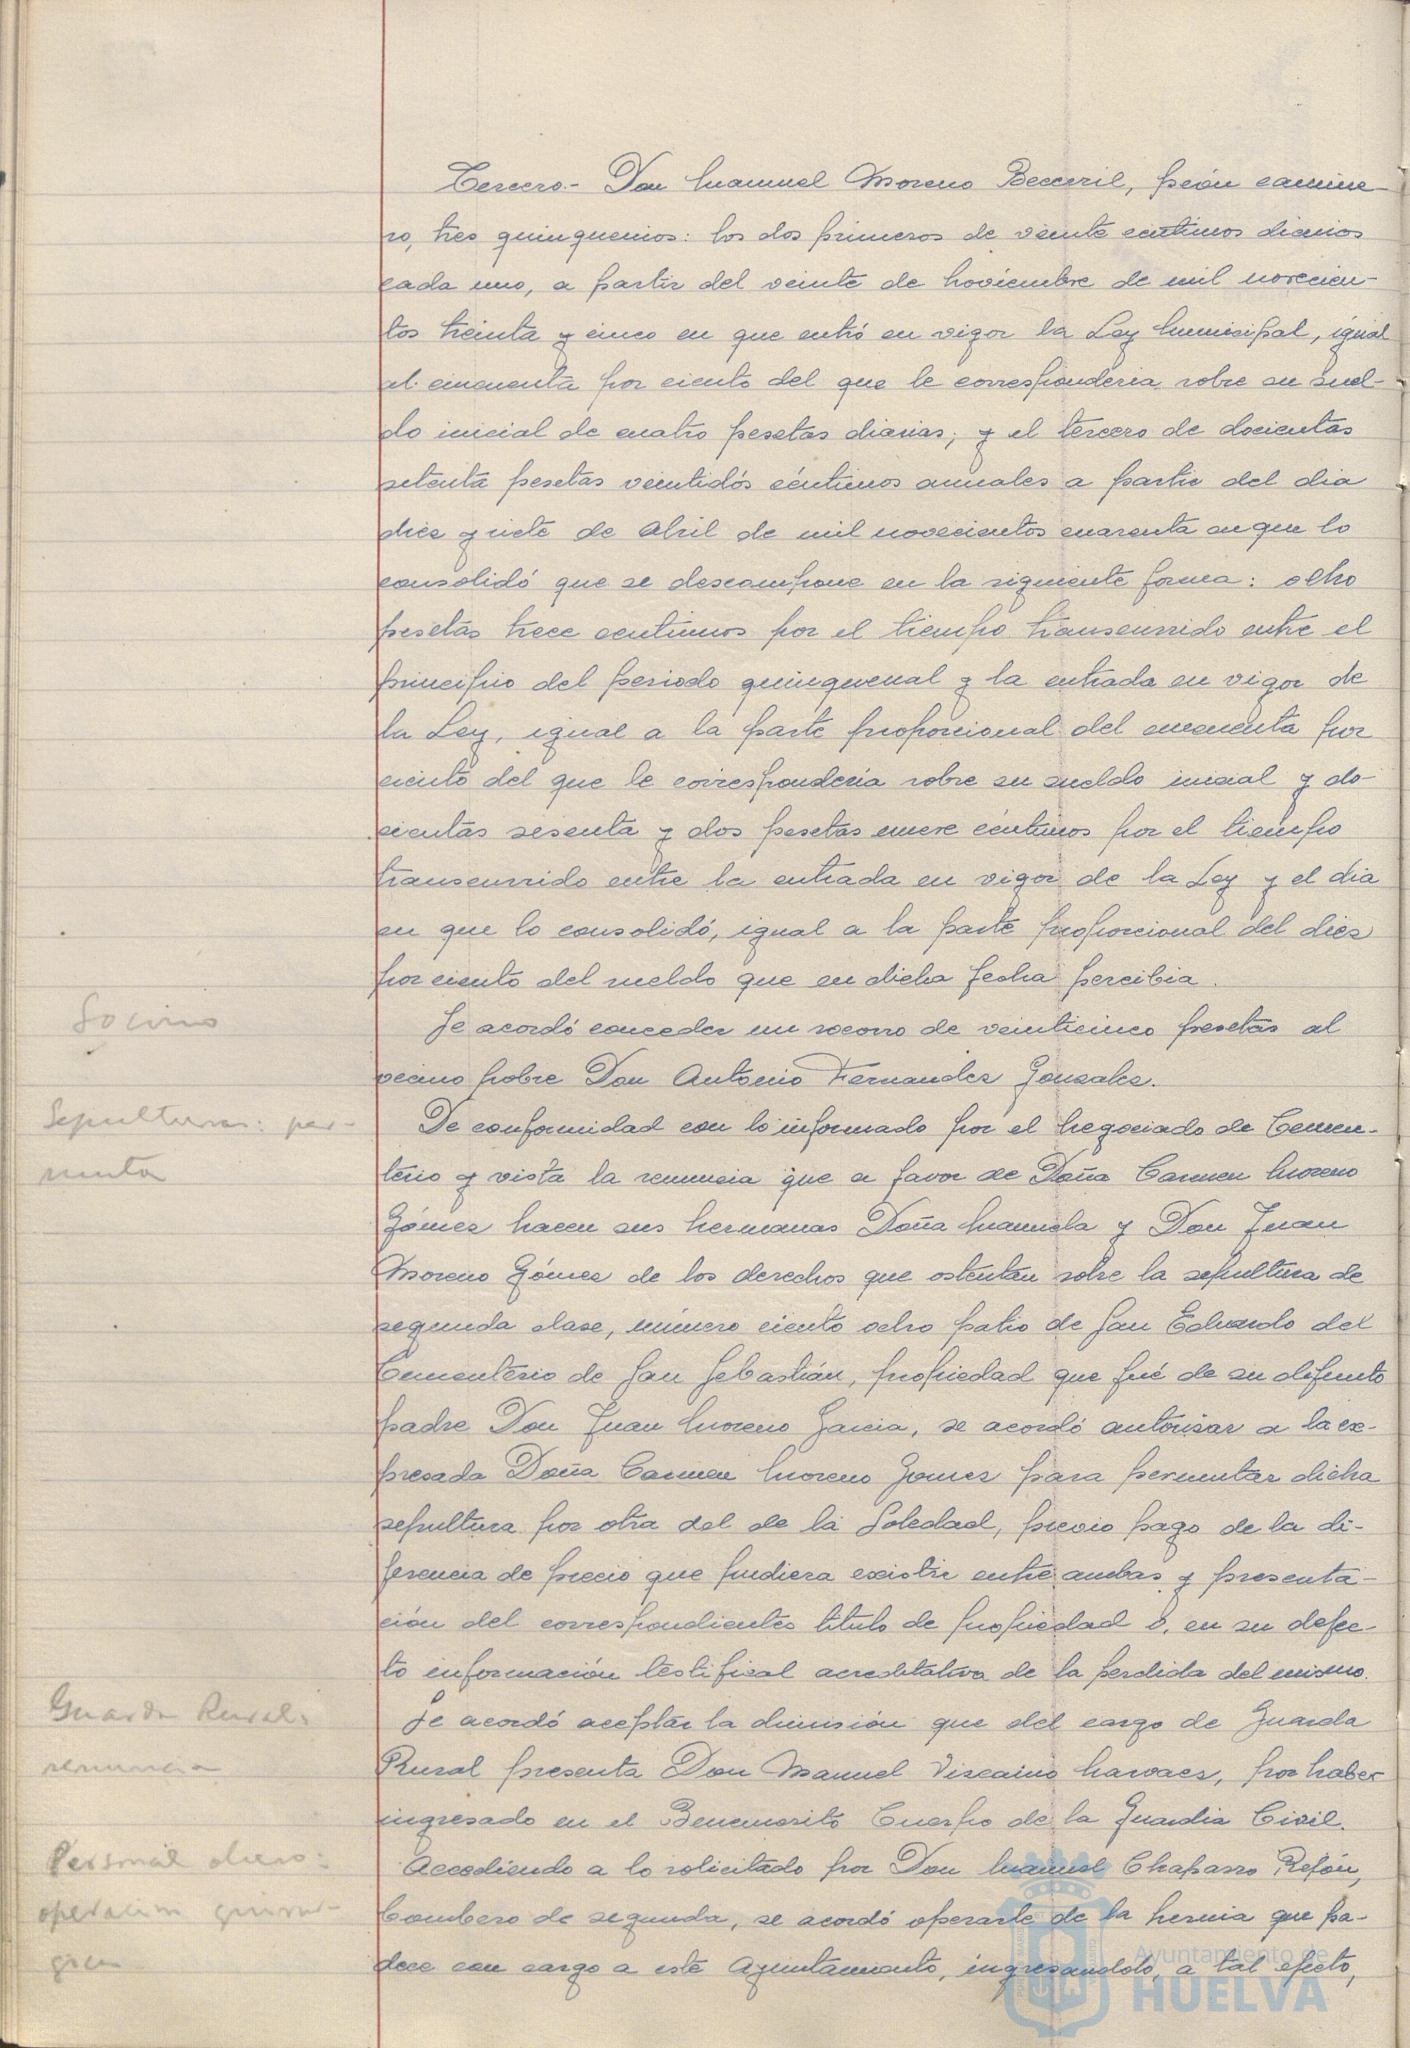 Tercero.- Don Manuel Moreno Becerril, peón camine-
ro, tres quinquenios: los dos primeros de veinte céntimos diarios
cada uno, a partir del veinte de Noviembre de mil novecien-
tos treinta y cinco en que entró en vigor la Ley Municipal, igual
al cincuenta por ciento del que le correspondería sobre su suel-
do inicial de cuatro pesetas diarias; y el tercero de docientas
setenta pesetas veintidós céntimos anuales a partir del dia
diez y siete de Abril de mil novecientos cuarenta en que lo
consolidó que se descompone en la siguiente forma: ocho
pesetas trece centimos por el tiempo transcurrido entre el
principio del periodo quinquenal y la entrada en vigor de
la Ley, igual a la parte proporcional del cincuenta por
ciento del que le correspondería sobre su sueldo inicial y do-
cientas sesenta y dos pesetas nueve céntimos por el tiempo
transcurrido entre la entrada en vigor de la Ley y el dia
en que lo consolidó, igual a la parte proporcional del diez
por ciento del sueldo que en dicha fecha percibia.
Socorro
Se acordó conceder un socorro de veinticinco pesetas al
vecino pobre Don Antonio Fernandez Gonzalez.
Sepulturas: per-
muta
De conformidad con lo informado por el Negociado de Cemen-
terio y vista la renuncia que a favor de Doña Carmen Moreno
Gómez hacen sus hermanas Doña Manuela y Don Juan
Moreno Gómez de los derechos que ostentan sobre la sepultura de
segunda clase, número ciento ocho patio de San Eduardo del
Cementerio de San Sebastián, propiedad que fué de su difunto
padre Don Juan Moreno Garcia, se acordó autorizar a la ex-
presada Doña Carmen Moreno Gomez para permutar dicha
sepultura por otra del de la Soledad, previo pago de la di-
ferencia de precio que pudiera existir entre ambas y presenta-
ción del correspondientes titulo de propiedad ó, en su defec-
to información testifical acreditativa de la perdida del mismo.
Guarda Rural:
renuncia
Se acordó aceptar la dimisión que del cargo de Guarda
Rural presenta Don Manuel Vizcaino Narvaez, por haber
ingresado en el Benemerito Cuerpo de la Guardia Civil.
Personal
operación quirúr-
gica
Accediendo a lo solicitado por Don Manuel Chaparro Rejón,
bombero de segunda, se acordó operarle de la hernia que pa-
dece con cargo a este Ayuntamiento, ingresandolo, a tal efecto,
Ayuntamiento de
HUELVA